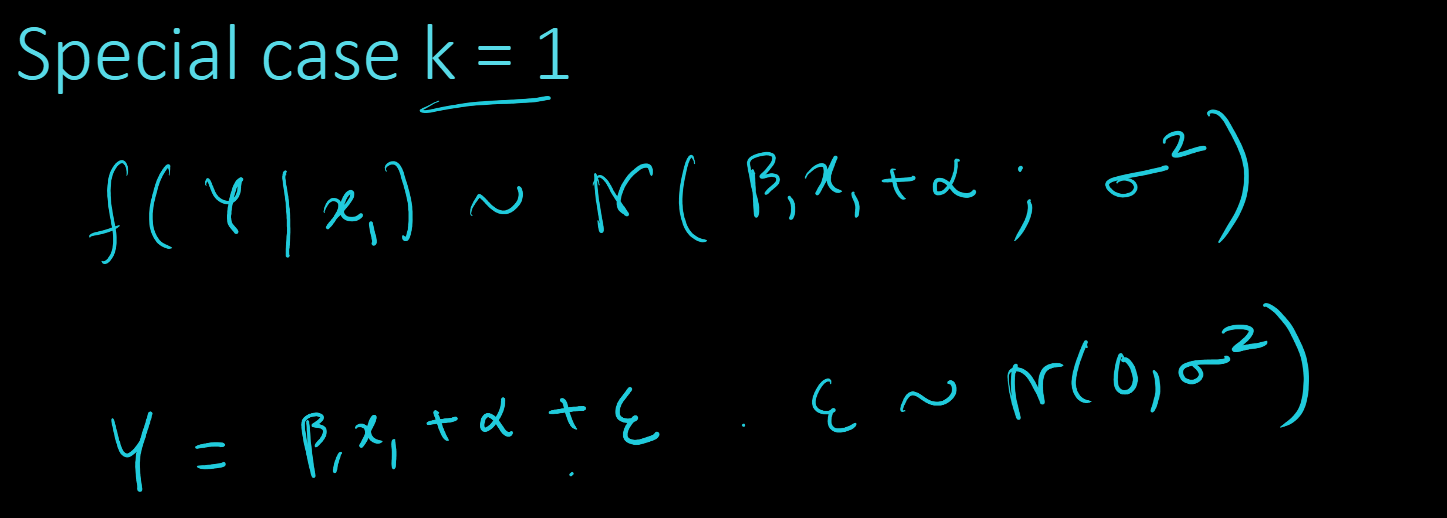 Special case k = 1
f(Y | x₁) ~ N(β₁x₁ + α ; σ²)
Y = β₁x₁ + α + ε . ε ~ N(0, σ²)